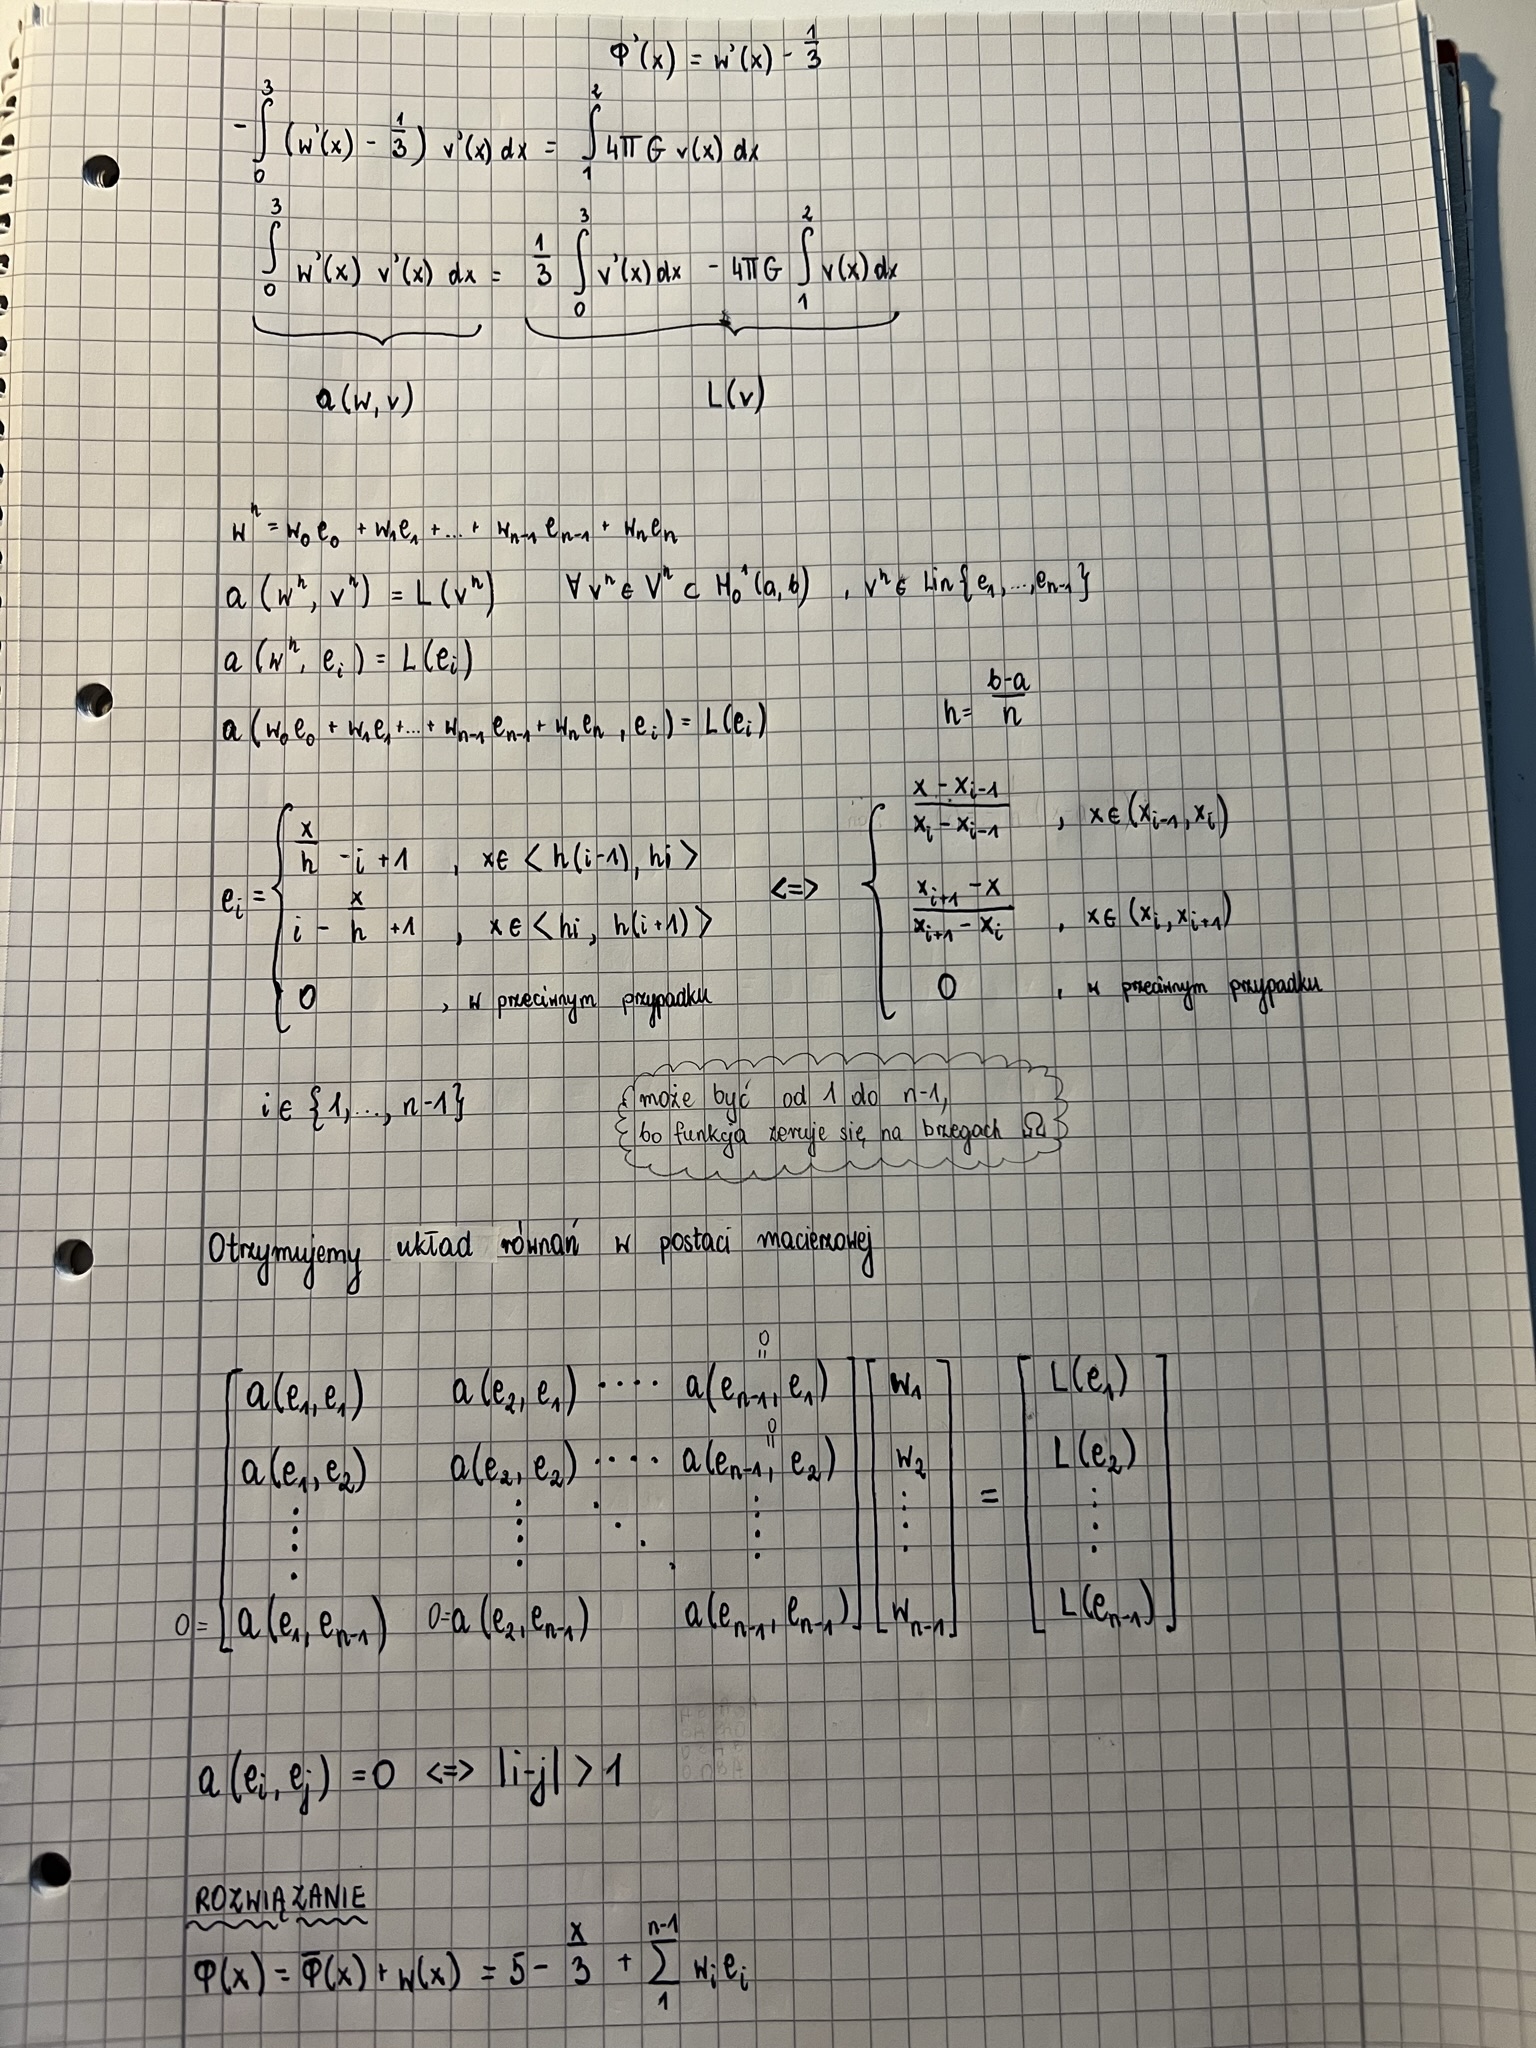 φ'(x) = w'(x) - 1/3
-∫₀³ (w'(x) - 1/3) v'(x) dx = ∫₁² 4πG v(x) dx
∫₀³ w'(x) v'(x) dx = 1/3 ∫₀³ v'(x) dx - 4πG ∫₁² v(x) dx
a(w, v) L(v)
wʰ = w₀e₀ + w₁e₁ + ... + wₙ₋₁eₙ₋₁ + wₙeₙ
a(wʰ, vʰ) = L(vʰ) ∀ vʰ ∈ Vʰ ⊂ H₀¹(a, b) , vʰ ∈ Lin{e₁, ..., eₙ₋₁}
a(wʰ, eᵢ) = L(eᵢ)
a(w₀e₀ + w₁e₁ + ... + wₙ₋₁eₙ₋₁ + wₙeₙ , eᵢ) = L(eᵢ) h = (b-a)/n
eᵢ = { x/h - i + 1 , x ∈ <h(i-1), hi> <=> { (x - xᵢ₋₁)/(xᵢ - xᵢ₋₁) , x ∈ (xᵢ₋₁, xᵢ)
i - x/h + 1 , x ∈ <hi, h(i+1)> (xᵢ₊₁ - x)/(xᵢ₊₁ - xᵢ) , x ∈ (xᵢ, xᵢ₊₁)
0 , w przeciwnym przypadku 0 , w przeciwnym przypadku
i ∈ {1, ..., n-1}
może być od 1 do n-1,
bo funkcja zeruje się na brzegach Ω
Otrzymujemy układ równań w postaci macierzowej
[ a(e₁, e₁) a(e₂, e₁) .... a(eₙ₋₁, e₁) = 0 ] [ w₁ ] [ L(e₁) ]
a(e₁, e₂) a(e₂, e₂) .... a(eₙ₋₁, e₂) = 0 w₂ L(e₂)
⋮ ⋮ ⋱ ⋮ ⋮ = ⋮
0 = a(e₁, eₙ₋₁) 0 = a(e₂, eₙ₋₁) a(eₙ₋₁, eₙ₋₁) wₙ₋₁ L(eₙ₋₁)
a(eᵢ, eⱼ) = 0 <=> |i-j| > 1
ROZWIĄZANIE
φ(x) = φ̄(x) + w(x) = 5 - x/3 + ∑₁ⁿ⁻¹ wᵢeᵢ